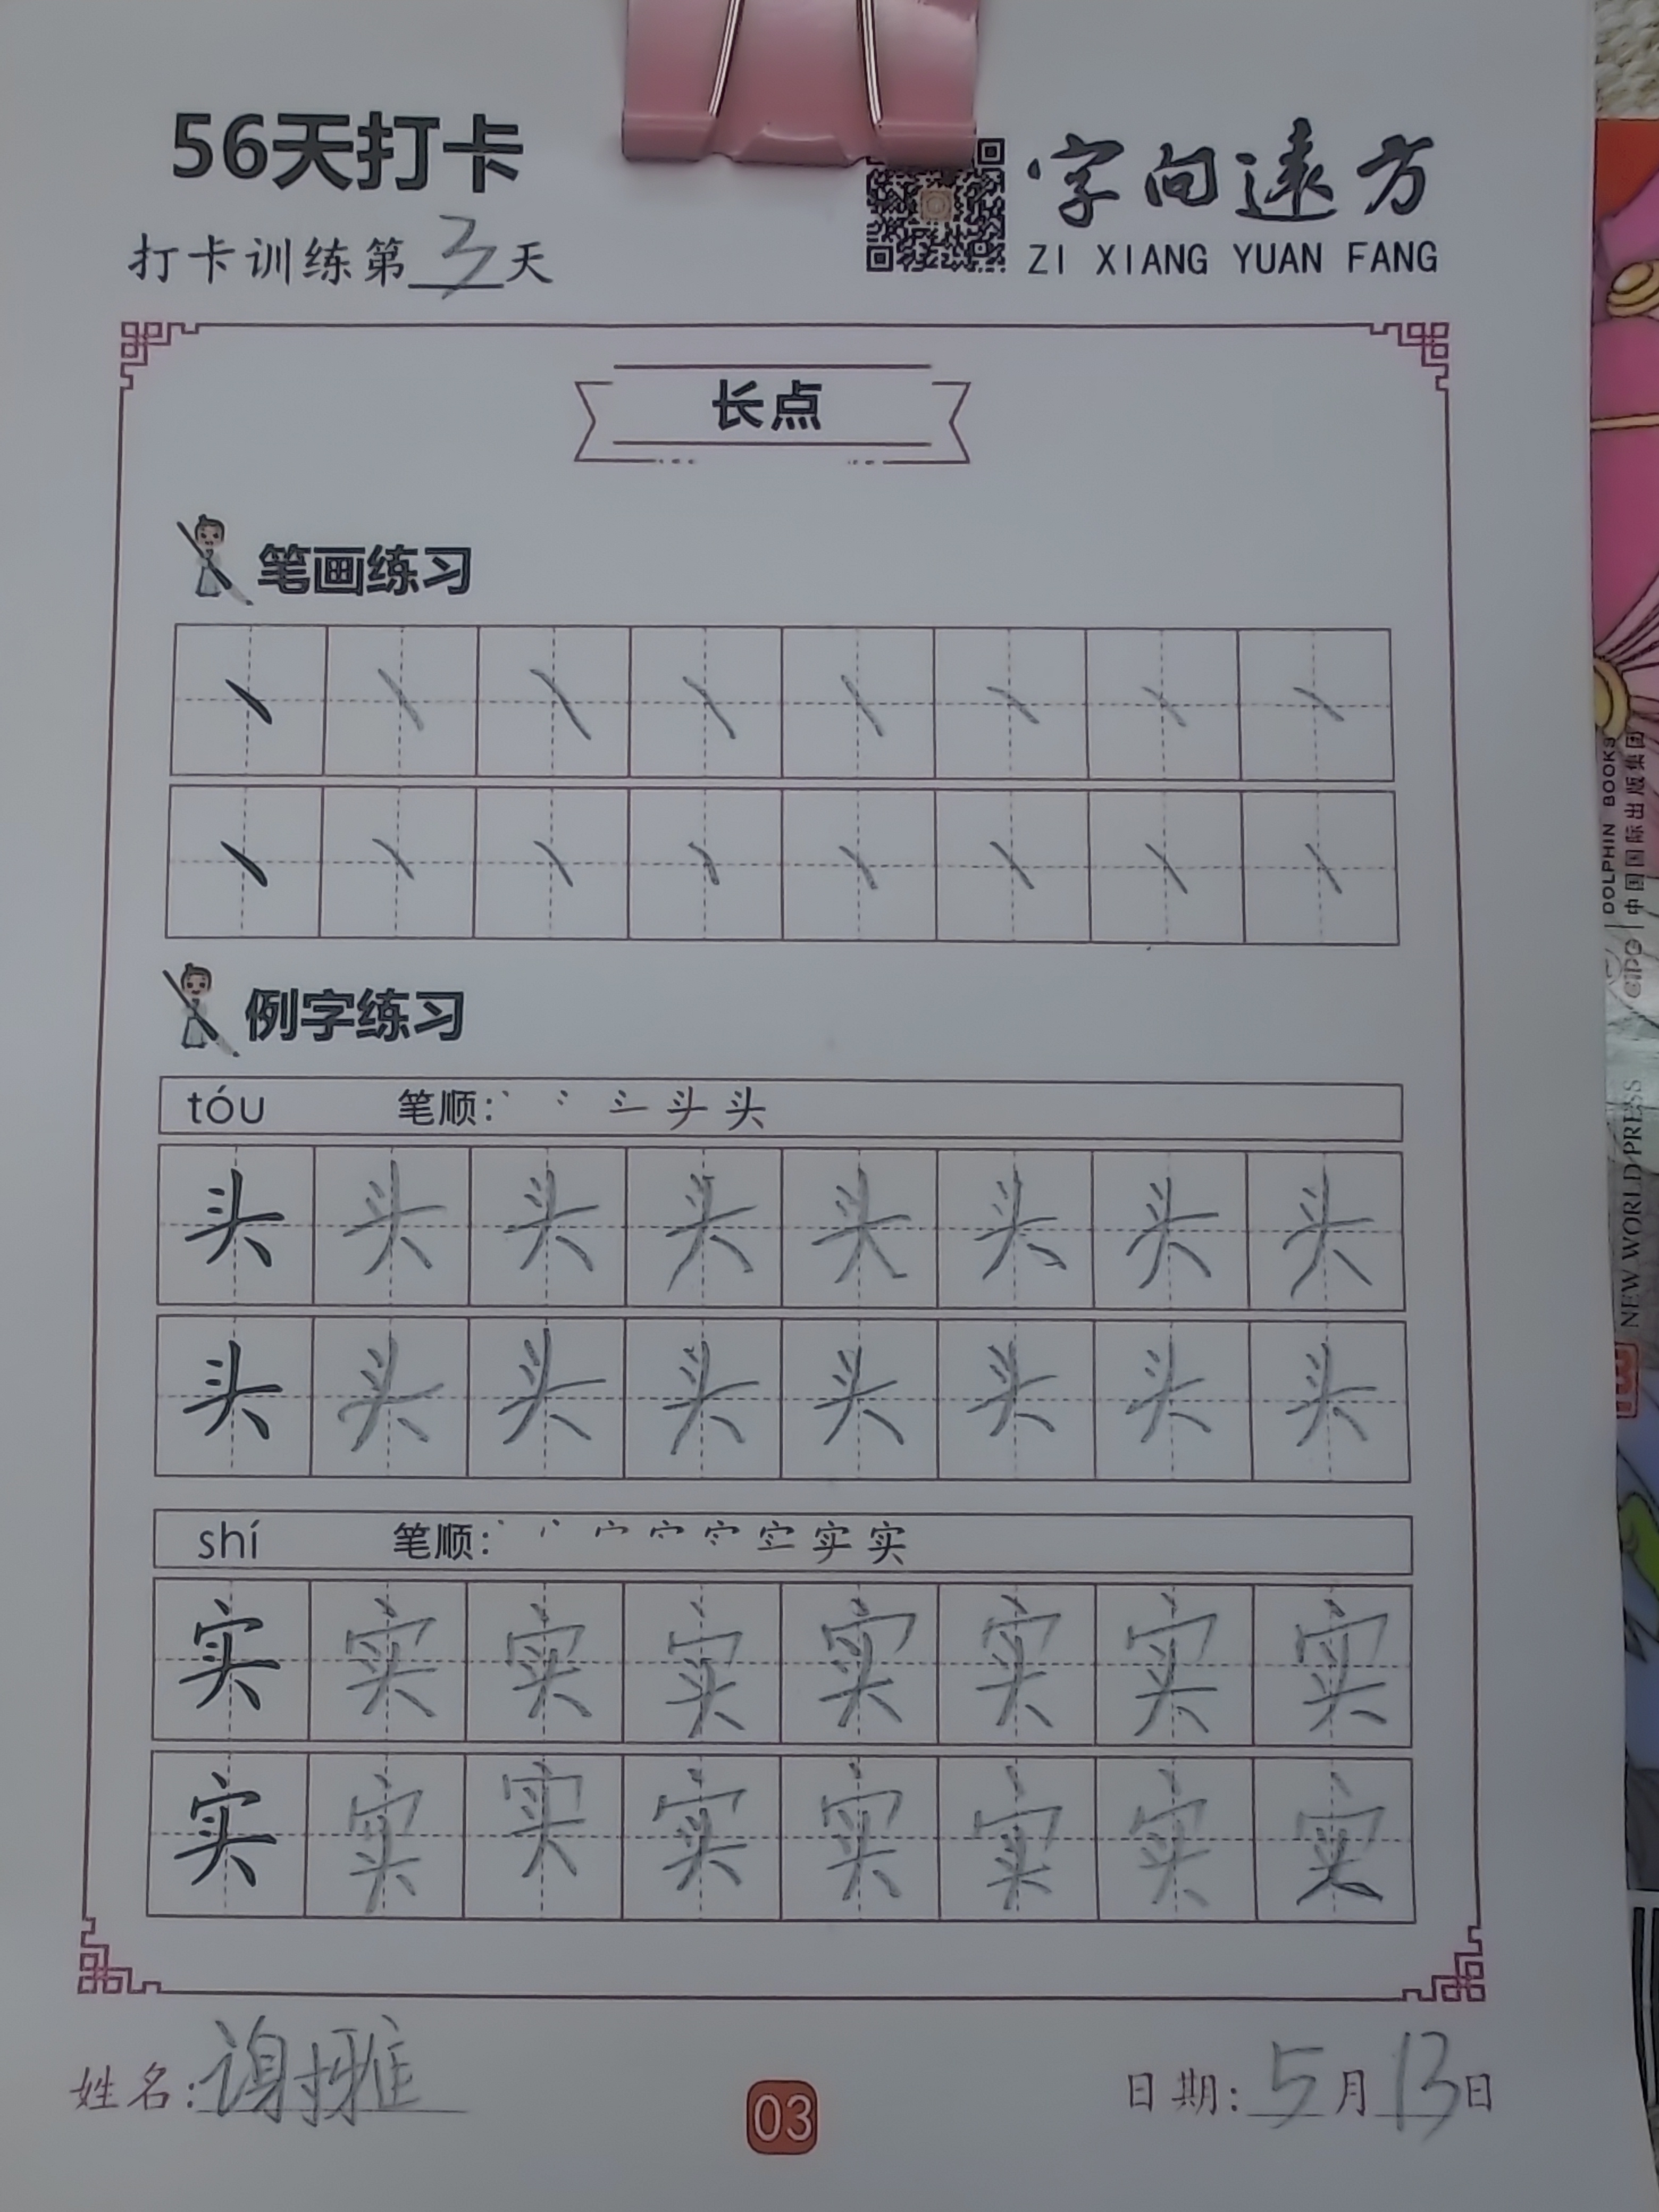 56天打卡
字向远方
打卡训练第3天
ZI XIANG YUAN FANG
长点
笔画练习
丶 丶 丶 丶 丶 丶 丶 丶
丶 丶 丶 丶 丶 丶 丶 丶
例字练习
tóu 笔顺: 头
头 头 头 头 头 头 头 头
头 头 头 头 头 头 头 头
shí 笔顺: 实
实 实 实 实 实 实 实 实
实 实 实 实 实 实 实 实
姓名:谢雅
03
日期:5月13日
DOLPHIN BOOKS
中国国际出版集团
CIPG
NEW WORLD PRESS